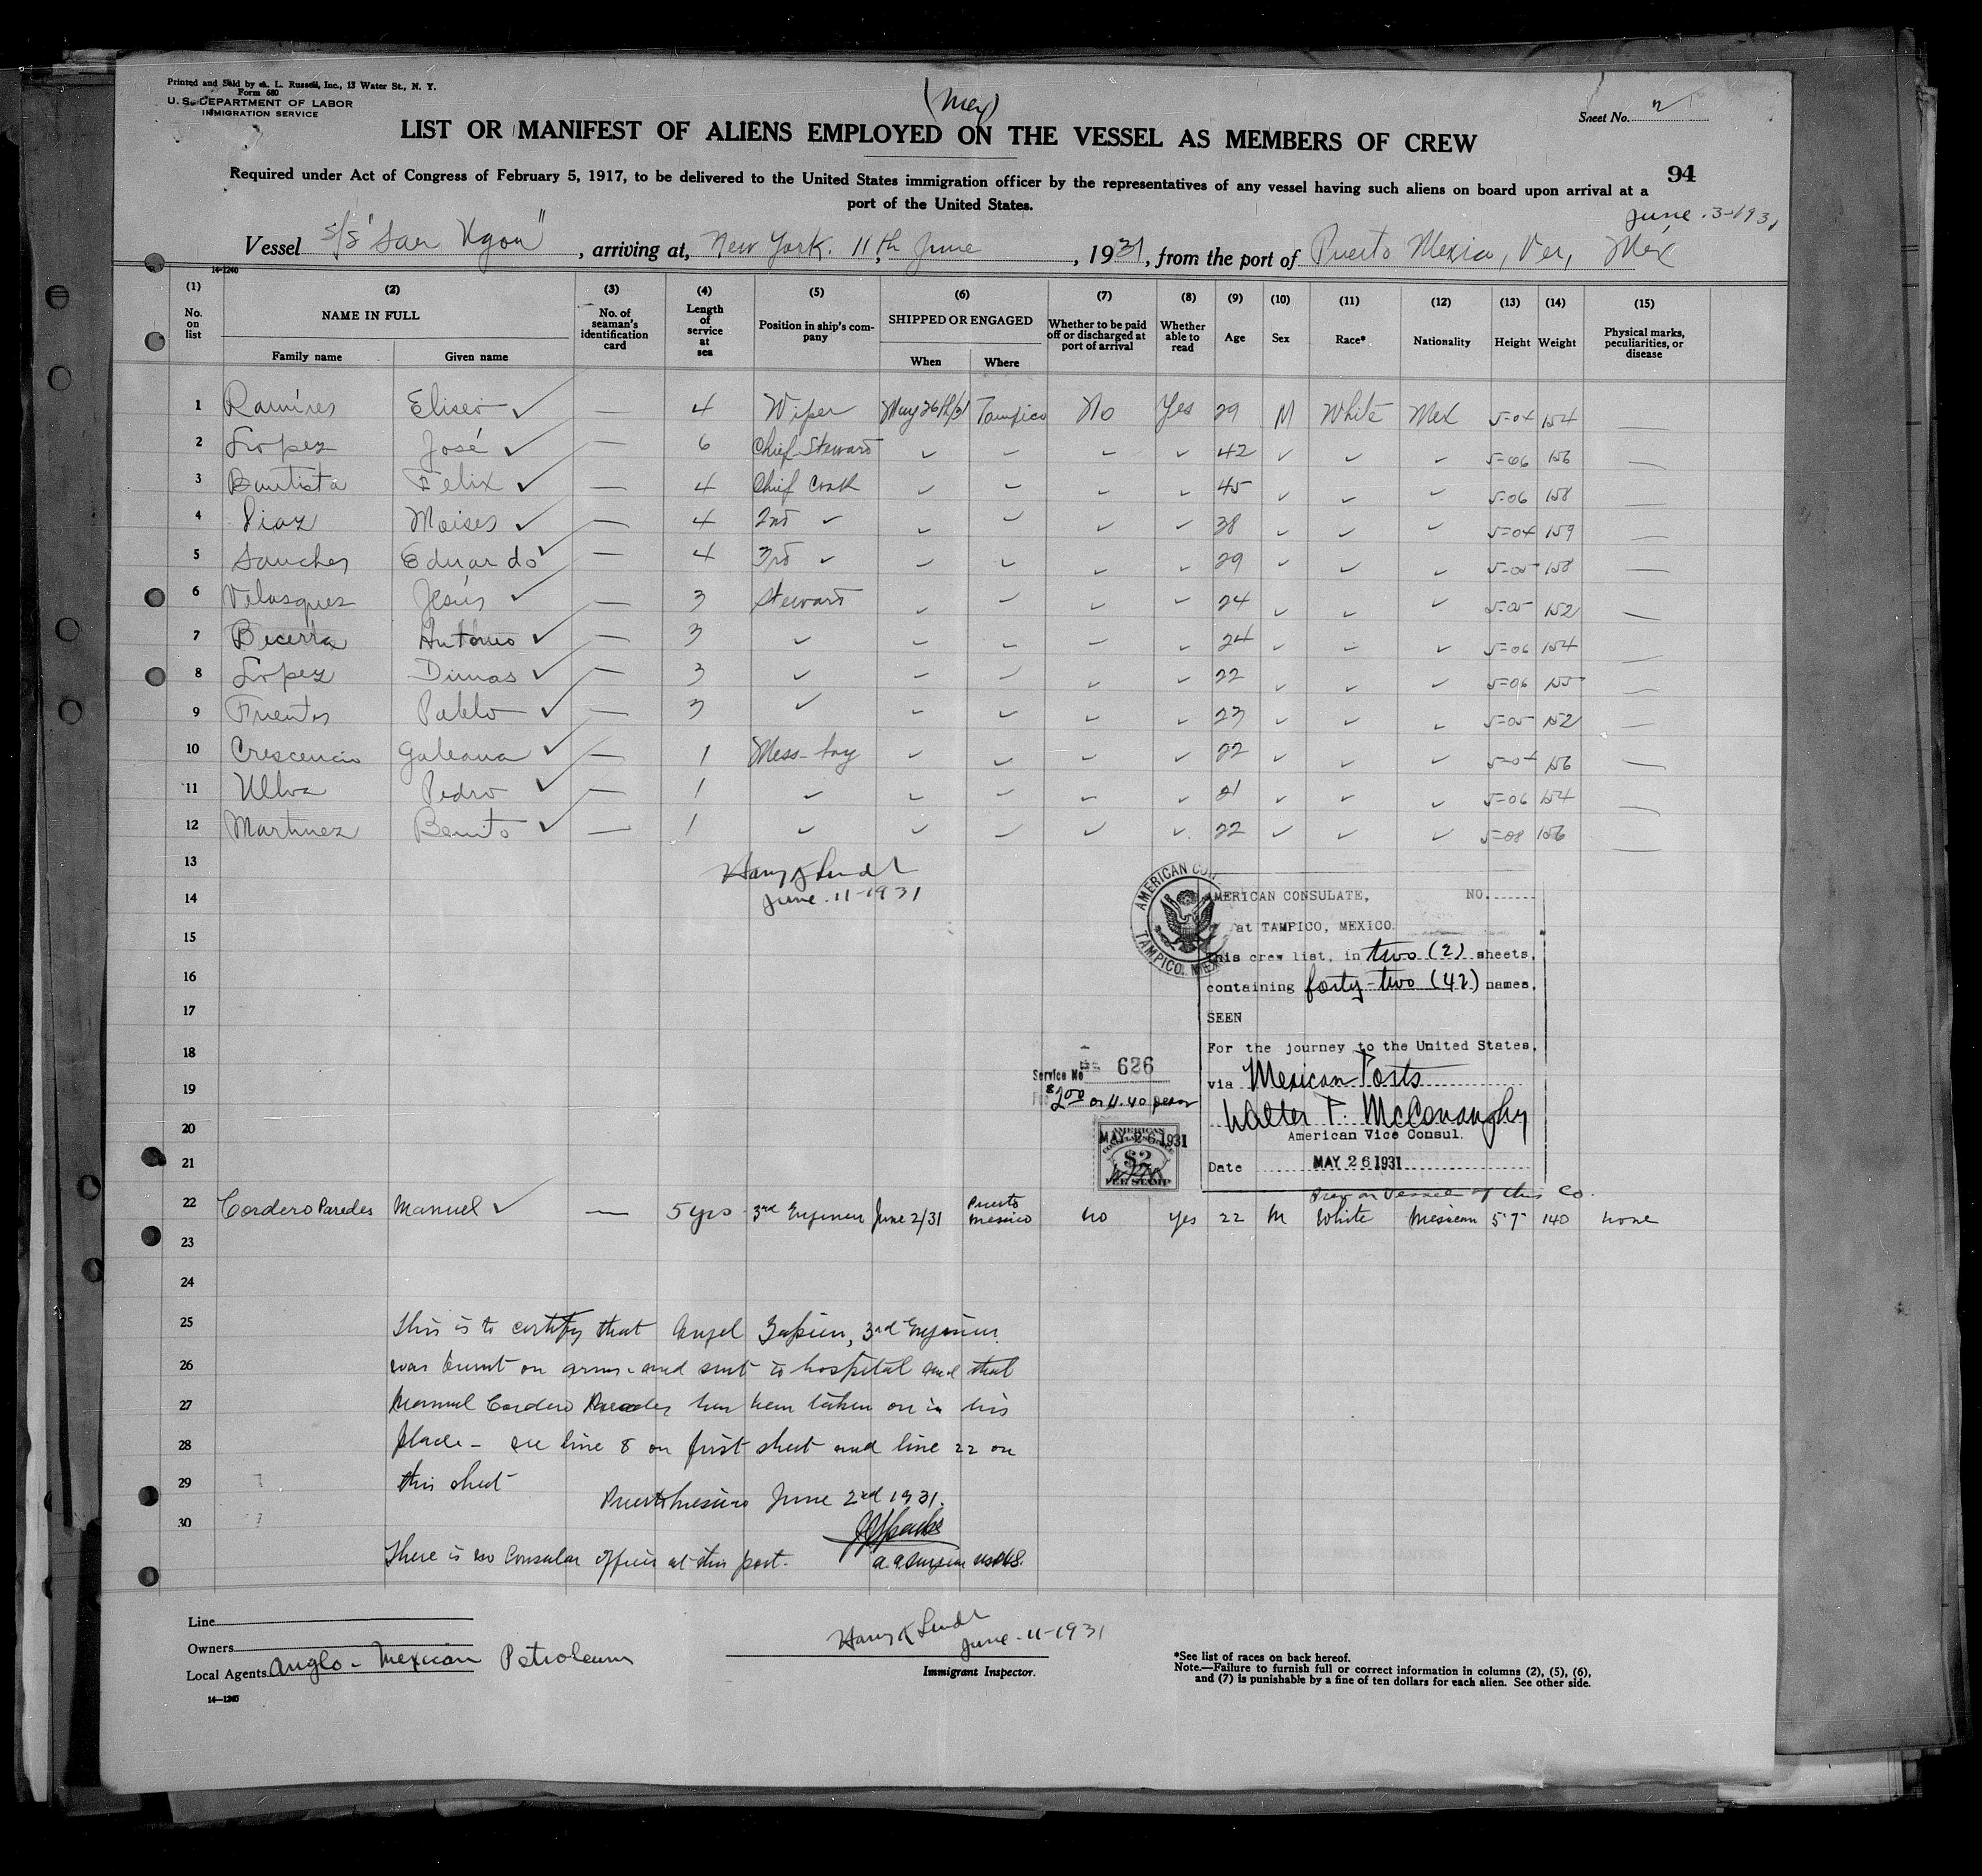 Printed and Sold by A. L. Russell, Inc., 13 Water St., N. Y.
Form 680
U. S. DEPARTMENT OF LABOR
IMMIGRATION SERVICE
(Mex)
Sheet No. 2
LIST OR MANIFEST OF ALIENS EMPLOYED ON THE VESSEL AS MEMBERS OF CREW
94
Required under Act of Congress of February 5, 1917, to be delivered to the United States immigration officer by the representatives of any vessel having such aliens on board upon arrival at a
port of the United States.
June 3-1931
Vessel S/S "San Ugon", arriving at, New York. 11th June, 1931, from the port of Puerto Mexico, Ver, Mex
14-1240
(1) (2) (3) (4) (5) (6) (7) (8) (9) (10) (11) (12) (13) (14) (15)
No. on list NAME IN FULL Family name Given name No. of seaman's identification card Length of service at sea Position in ship's company SHIPPED OR ENGAGED When Where Whether to be paid off or discharged at port of arrival Whether able to read Age Sex Race* Nationality Height Weight Physical marks, peculiarities, or disease
1 Ramires Eliseo ✓ — 4 Wiper May 26th/31 Tampico No Yes 29 M White Mex 5-04 154 —
2 Lopez José ✓ — 6 Chief Steward ✓ ✓ ✓ ✓ 42 ✓ ✓ ✓ 5-06 156 —
3 Bautista Felix ✓ — 4 Chief Cook ✓ ✓ ✓ ✓ 45 ✓ ✓ ✓ 5-06 158 —
4 Diaz Moises ✓ — 4 2nd ✓ ✓ ✓ ✓ ✓ 38 ✓ ✓ ✓ 5-04 159 —
5 Sanches Eduardo ✓ — 4 3rd ✓ ✓ ✓ ✓ ✓ 29 ✓ ✓ ✓ 5-05 158 —
6 Velasquez Jesús ✓ — 3 Steward ✓ ✓ ✓ ✓ 24 ✓ ✓ ✓ 5-05 152 —
7 Becerra Antonio ✓ — 3 ✓ ✓ ✓ ✓ ✓ 24 ✓ ✓ ✓ 5-06 154 —
8 Lopez Dimas ✓ — 3 ✓ ✓ ✓ ✓ ✓ 22 ✓ ✓ ✓ 5-06 155 —
9 Fuentes Pablo ✓ — 3 ✓ ✓ ✓ ✓ ✓ 23 ✓ ✓ ✓ 5-05 152 —
10 Crescencio Galeana ✓ — 1 Mess-boy ✓ ✓ ✓ ✓ 22 ✓ ✓ ✓ 5-04 156 —
11 Ulloa Pedro ✓ — 1 ✓ ✓ ✓ ✓ ✓ 21 ✓ ✓ ✓ 5-06 154 —
12 Martinez Benito ✓ — 1 ✓ ✓ ✓ ✓ ✓ 22 ✓ ✓ ✓ 5-08 156 —
13
Harry K
14 June 11-1931
AMERICAN CON
TAMPICO, MEX
AMERICAN CONSULATE, NO.
at TAMPICO, MEXICO.
15
This crew list, in two (2) sheets,
16
containing forty-two (42) names,
17
SEEN
18
For the journey to the United States,
Service No 626
19
via Mexican Ports
$2.00 or 4.40 pesos
20
Walter P. McConaughy
American Vice Consul.
MAY 26 1931
AMERICAN
$2
FEE STAMP
21
Date MAY 26 1931
on vessel of this Co.
22 Cordero Paredes Manuel ✓ — 5 yrs 3rd Engineer June 2/31 Puerto Mexico no yes 22 M White Mexican 5'7 140 none
23
24
25 This is to certify that Angel 3rd Engineer
26 was burnt on arms and sent to hospital and that
27 Manuel Cordero Paredes has been taken on in his
28 place - see line 8 on first sheet and line 22 on
29 this sheet
Puerto Mexico June 2nd 1931.
30
There is no Consular Officer at this port. a. a. Surgeon USPHS.
Line
Owners
Local Agents Anglo-Mexican Petroleum
Harry K
June-11-1931
Immigrant Inspector.
*See list of races on back hereof.
Note.—Failure to furnish full or correct information in columns (2), (5), (6),
and (7) is punishable by a fine of ten dollars for each alien. See other side.
14—1240